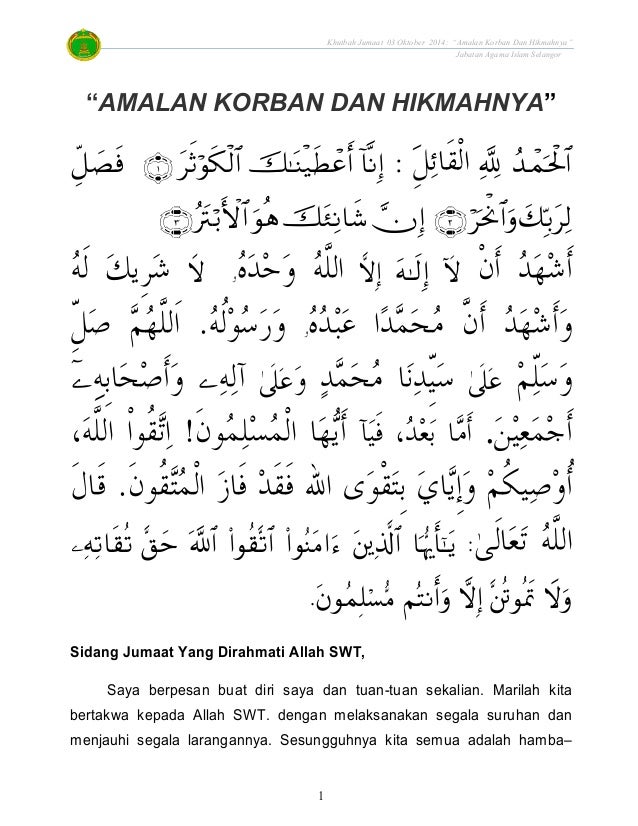 Khutbah Jumaat 03 Oktober 2014: “Amalan Korban Dan Hikmahnya”
Jabatan Agama Islam Selangor
“AMALAN KORBAN DAN HIKMAHNYA”
ٱلْحَمْدُ لِلَّهِ الْقَائِلِ : إِنَّآ أَعْطَيْنَـٰكَ ٱلْكَوْثَرَ ١ فَصَلِّ
لِرَبِّكَ وَٱنْحَرْ ٢ إِنَّ شَانِئَكَ هُوَ ٱلْأَبْتَرُ ٣
أَشْهَدُ أَنْ لَآ إِلَـٰهَ إِلَّا اللَّهُ وَحْدَهُ لَا شَرِيكَ لَهُ
وَأَشْهَدُ أَنَّ مُحَمَّدًا عَبْدُهُ وَرَسُوْلُهُ. اَللَّهُمَّ صَلِّ
وَسَلِّمْ عَلَىٰ سَيِّدِنَا مُحَمَّدٍ وَعَلَىٰ آلِهِ وَأَصْحَابِهِ
أَجْمَعِيْنَ. أَمَّا بَعْدُ، فَيَآ أَيُّهَا الْمُسْلِمُونَ! اِتَّقُوا اللَّهَ،
أُوْصِيكُمْ وَإِيَّايَ بِتَقْوَى الله فَقَدْ فَازَ الْمُتَّقُونَ. قَالَ
اللَّهُ تَعَالَىٰ: يَـٰٓأَيُّهَا ٱلَّذِينَ ءَامَنُوا۟ ٱتَّقُوا۟ ٱللَّهَ حَقَّ تُقَاتِهِ
وَلَا تَمُوتُنَّ إِلَّا وَأَنتُم مُّسْلِمُونَ.
Sidang Jumaat Yang Dirahmati Allah SWT,
Saya berpesan buat diri saya dan tuan-tuan sekalian. Marilah kita
bertakwa kepada Allah SWT. dengan melaksanakan segala suruhan dan
menjauhi segala larangannya. Sesungguhnya kita semua adalah hamba–
1